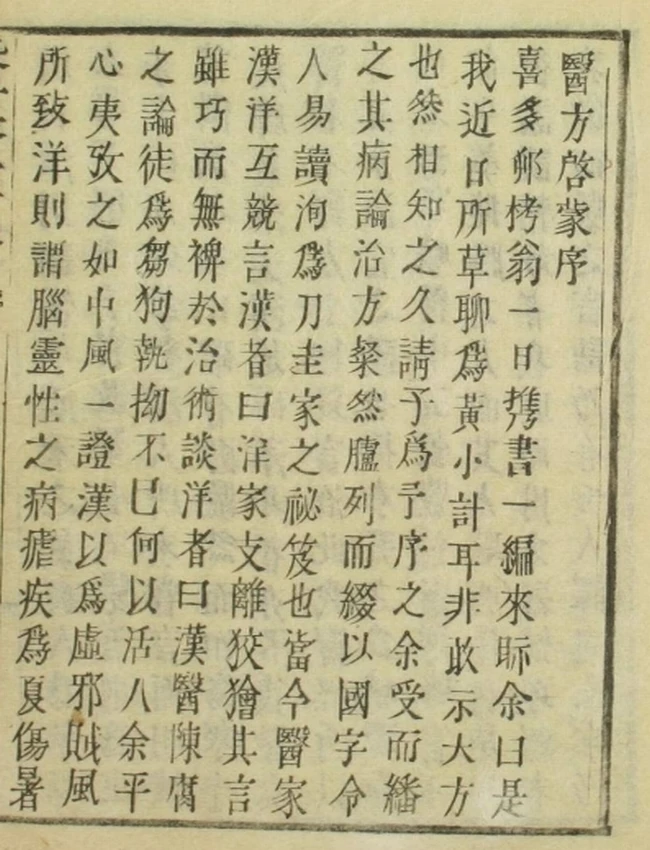 醫方啓蒙序
喜多邨栲翁一日携書一編來眎余曰是
我近日所草聊爲黃小計耳非敢示大方
也然相知之久請子爲予序之余受而繙
之其病論治方粲然臚列而綴以國字令
人易讀洵爲刀圭家之祕笈也當今醫家
漢洋互競言漢者曰洋家支離狡獪其言
雖巧而無裨於治術談洋者曰漢醫陳腐
之論徒爲芻狗執拗不已何以活人余平
心夷攷之如中風一證漢以爲虛邪賊風
所致洋則謂腦靈性之病瘧疾爲夏傷暑